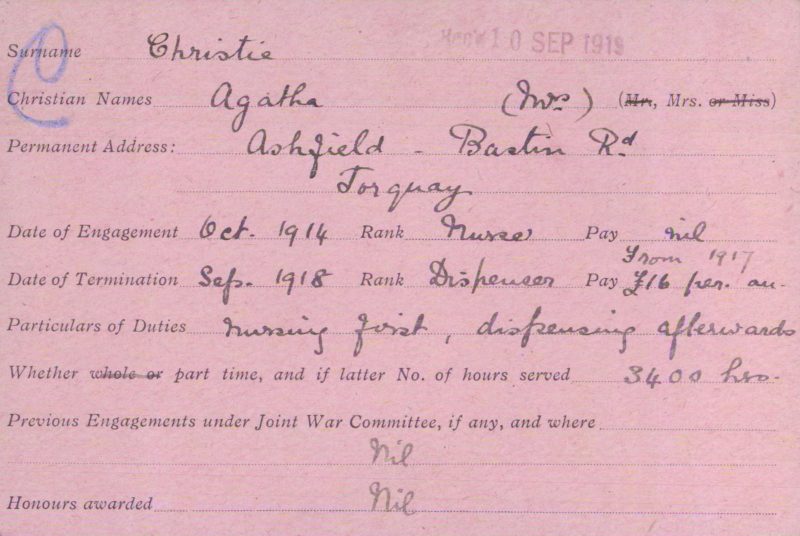 C
Rec'd 10 SEP 1919
Surname Christie
Christian Names Agatha (Mrs) (Mr., Mrs. or Miss)
Permanent Address: Ashfield - Bartin Rd
Torquay
Date of Engagement Oct. 1914 Rank Nurse Pay nil
From 1917
Date of Termination Sep. 1918 Rank Dispenser Pay £16 per. an.
Particulars of Duties nursing first, dispensing afterwards
Whether whole or part time, and if latter No. of hours served 3400 hrs.
Previous Engagements under Joint War Committee, if any, and where
Nil
Honours awarded Nil